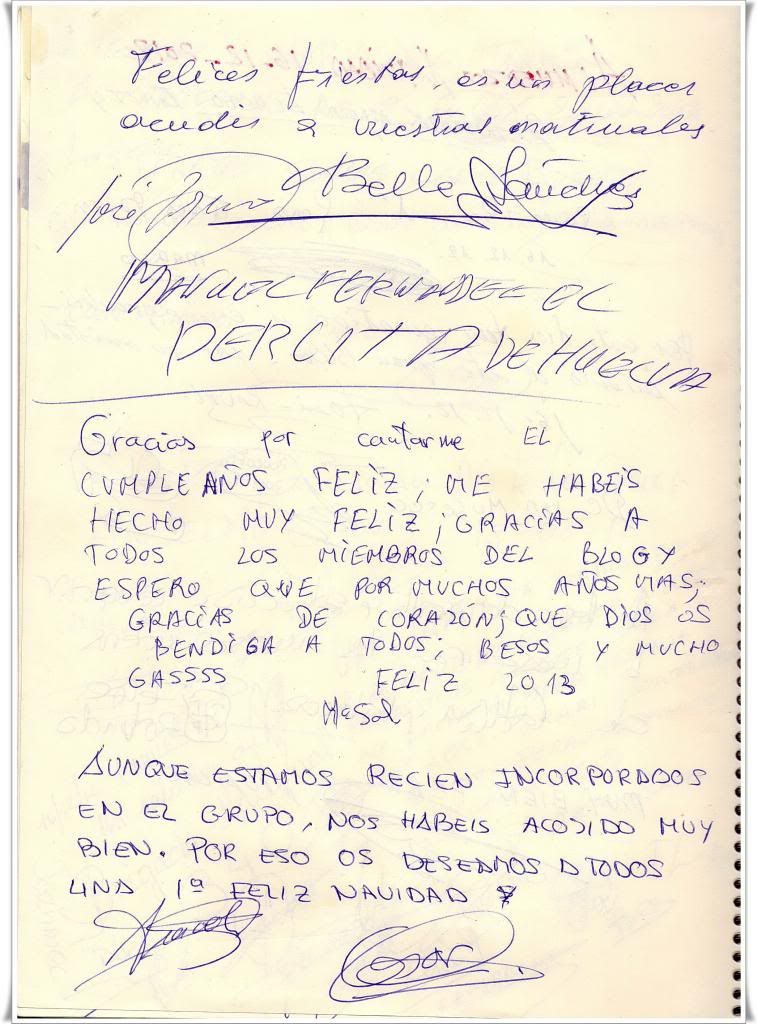 Felices fiestas, es un placer
acudir a vuestras matinales
José Belle Sánches
MANUEL FERNANDEZ EL
PERCITA DE HUELVA
Gracias por cantarme EL
CUMPLEAÑOS FELIZ; ME HABEIS
HECHO MUY FELIZ; GRACIAS A
TODOS LOS MIEMBROS DEL BLOG Y
ESPERO QUE POR MUCHOS AÑOS MAS;
GRACIAS DE CORAZÓN; QUE DIOS OS
BENDIGA A TODOS; BESOS Y MUCHO
GASSSS FELIZ 2013
Mª Sol
AUNQUE ESTAMOS RECIEN INCORPORADOS
EN EL GRUPO, NOS HABEIS ACOJIDO MUY
BIEN. POR ESO OS DESEAMOS A TODOS
UNA 1ª FELIZ NAVIDAD